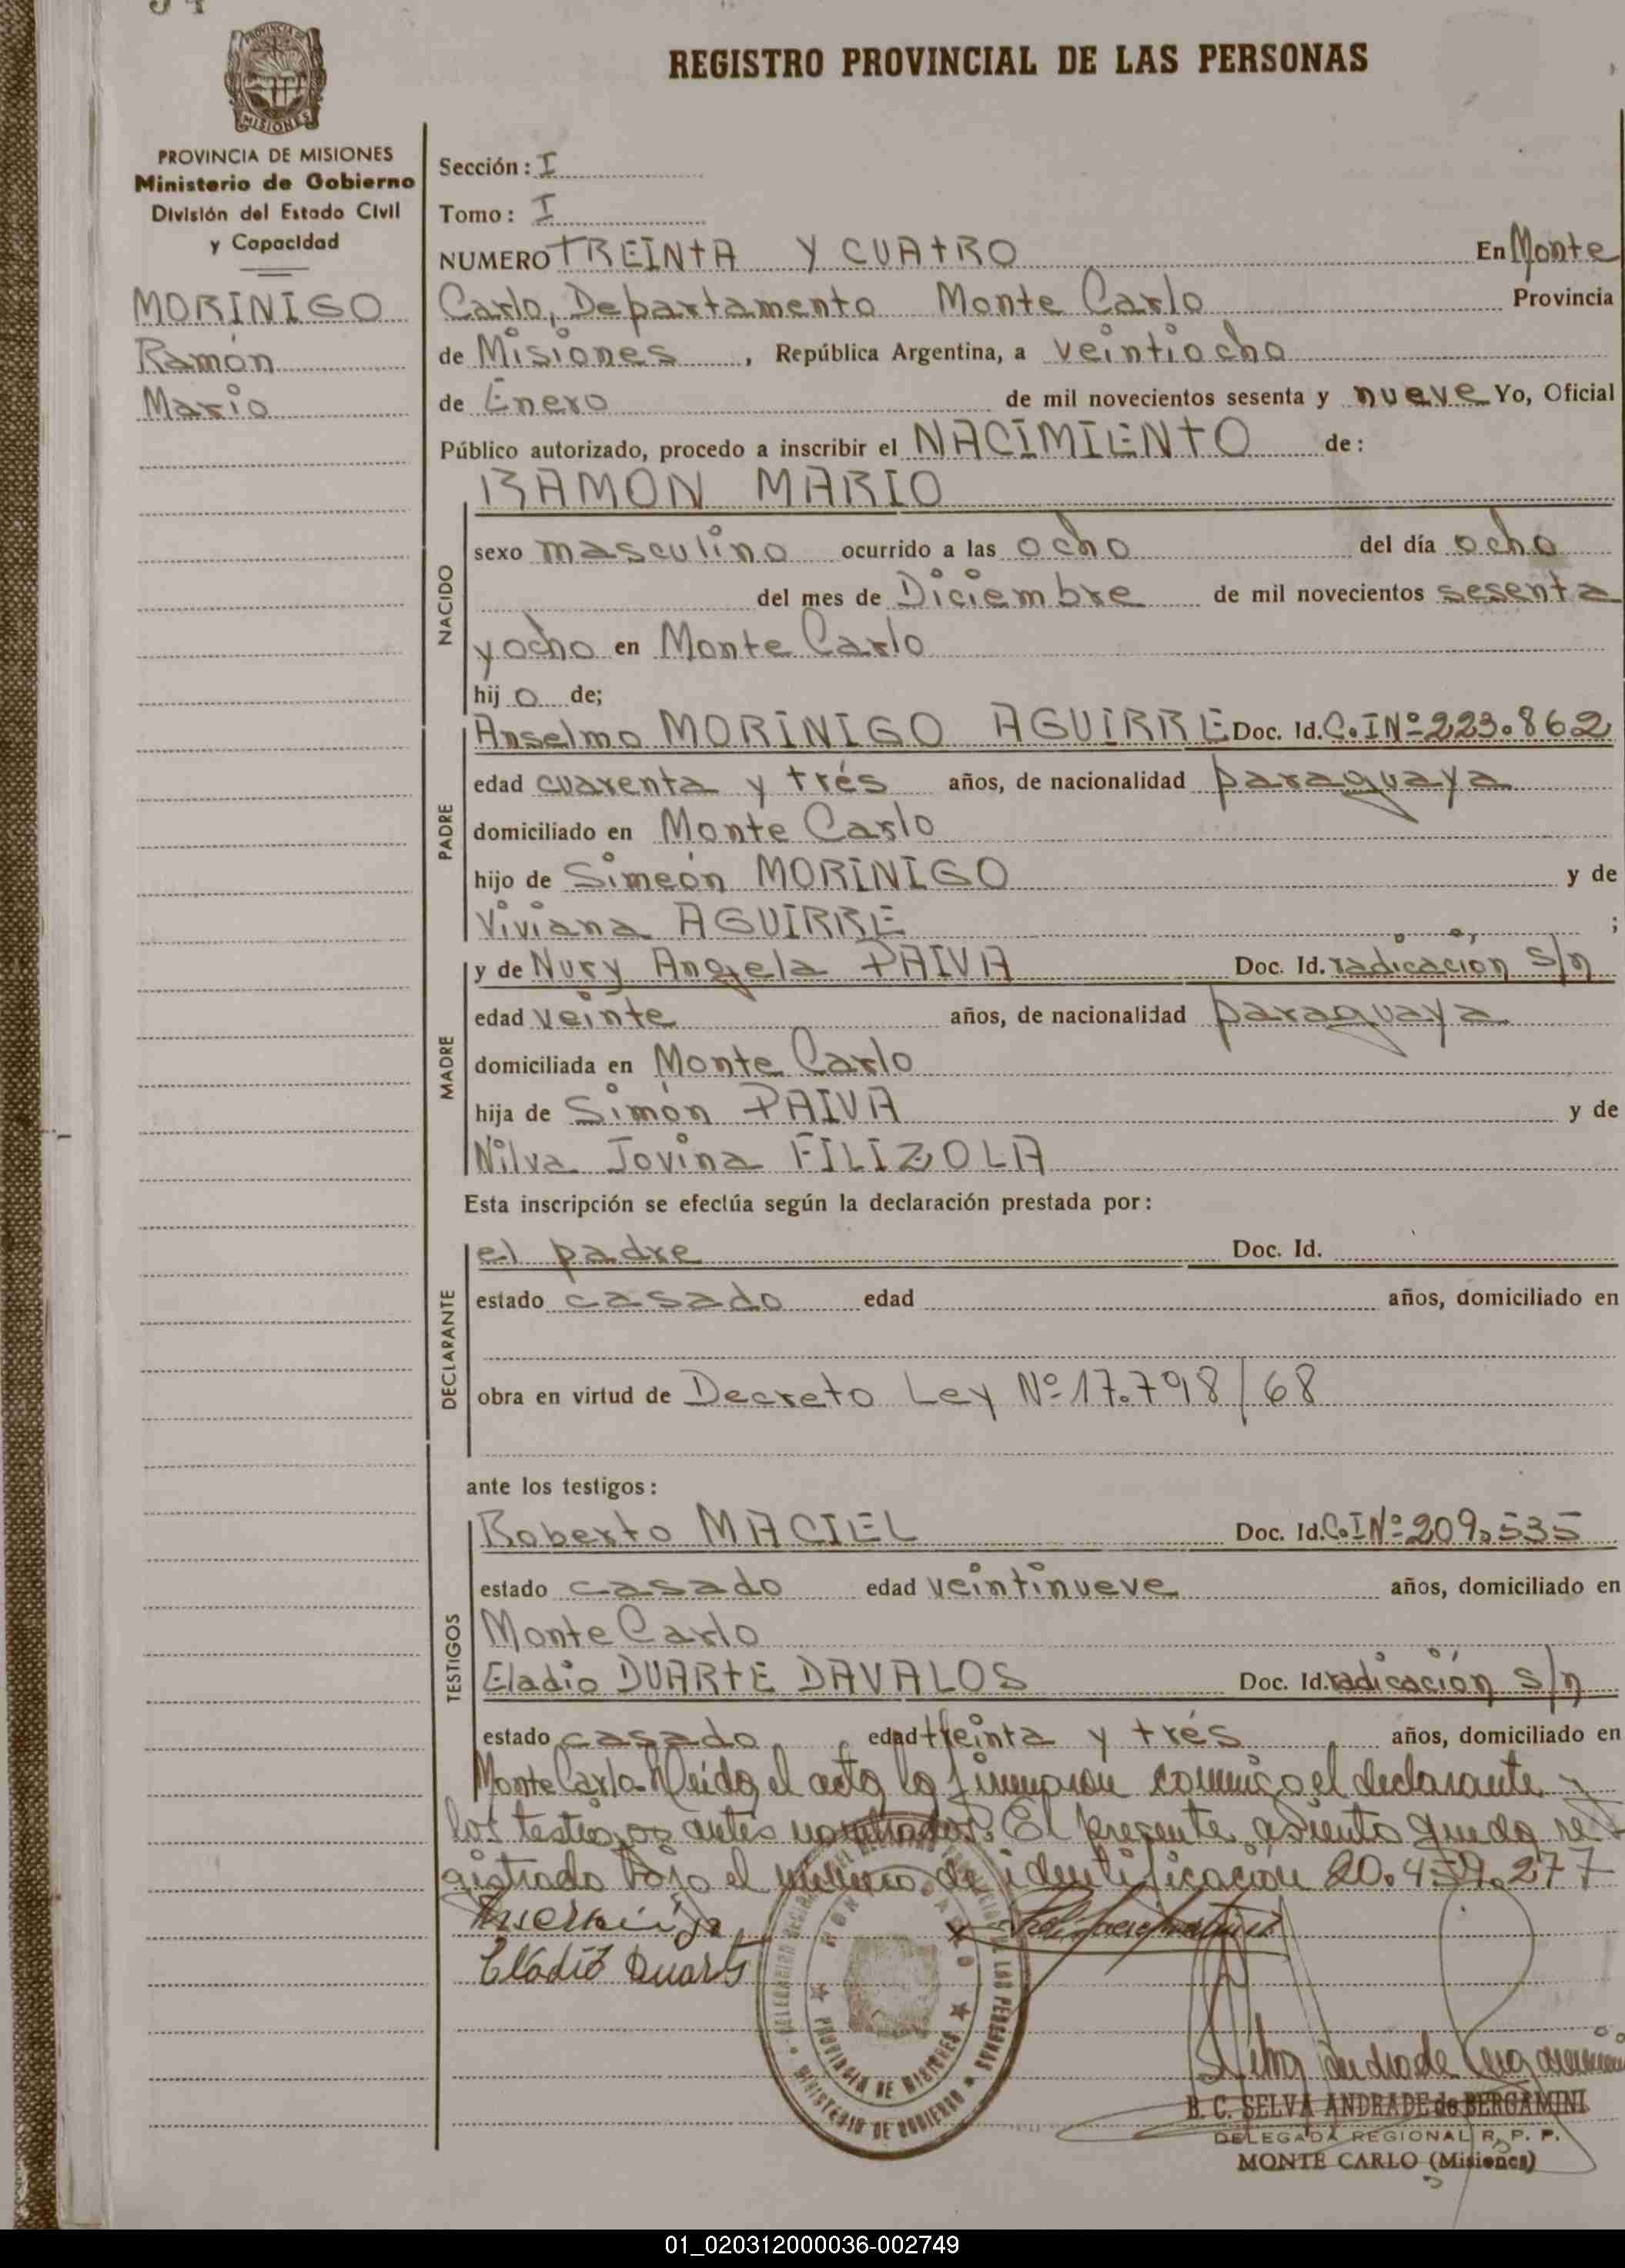 REGISTRO PROVINCIAL DE LAS PERSONAS
PROVINCIA DE MISIONES
MISIONES
PROVINCIA DE MISIONES
Ministerio de Gobierno
División del Estado Civil
y Capacidad
MORINIGO
Ramón
Mario
Sección: I
Tomo: I
NUMERO TREINTA Y CUATRO En Monte
Carlo, Departamento Monte Carlo Provincia
de Misiones, República Argentina, a veintiocho
de Enero de mil novecientos sesenta y nueve Yo, Oficial
Público autorizado, procedo a inscribir el NACIMIENTO de:
NACIDO
RAMON MARIO
sexo masculino ocurrido a las ocho del día ocho
del mes de Diciembre de mil novecientos sesenta
y ocho en Monte Carlo
hijo de;
PADRE
Anselmo MORINIGO AGUIRRE Doc. Id. C.I Nº 223.862
edad cuarenta y trés años, de nacionalidad paraguaya
domiciliado en Monte Carlo
hijo de Simeón MORINIGO y de
Viviana AGUIRRE ;
MADRE
y de Nury Angela PAIVA Doc. Id. radicación s/n
edad veinte años, de nacionalidad paraguaya
domiciliada en Monte Carlo
hija de Simón PAIVA y de
Nilva Jovina FILIZOLA
Esta inscripción se efectúa según la declaración prestada por:
DECLARANTE
el padre Doc. Id.
estado casado edad años, domiciliado en
obra en virtud de Decreto Ley Nº 17.798/68
ante los testigos:
TESTIGOS
Roberto MACIEL Doc. Id. C.I Nº 209.535
estado casado edad veintinueve años, domiciliado en
Monte Carlo
Eladio DUARTE DAVALOS Doc. Id. radicación s/n
estado casado edad treinta y trés años, domiciliado en
Monte Carlo. Leida el acta la firmaron conmigo el declarante y
los testigos antes nombrados. El presente asiento queda re
gistrado bajo el número de identificación 20.459.277
Eladio Duarte
PROVINCIA DE MISIONES
MINISTERIO DE GOBIERNO
LAS PERSONAS
Selva Andrade Bergamini
B. C. SELVA ANDRADE de BERGAMINI
DELEGADA REGIONAL R. P. P.
MONTE CARLO (Misiones)
01_020312000036-002749